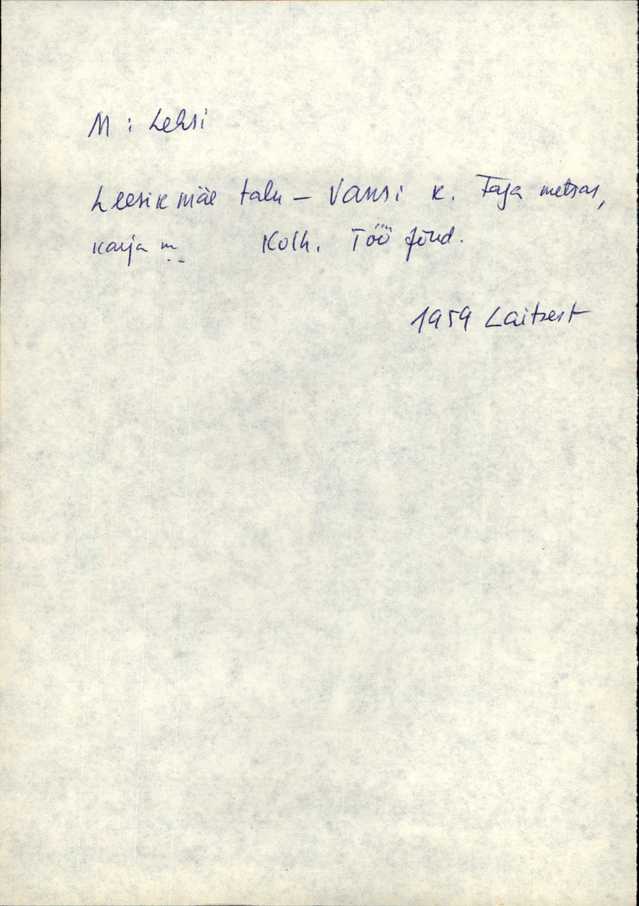 M : Lehsi
Leesikmäe talu – Vansi k. Taja metsas,
karja m Kolh. Töö jõud.
1959 Laitsest